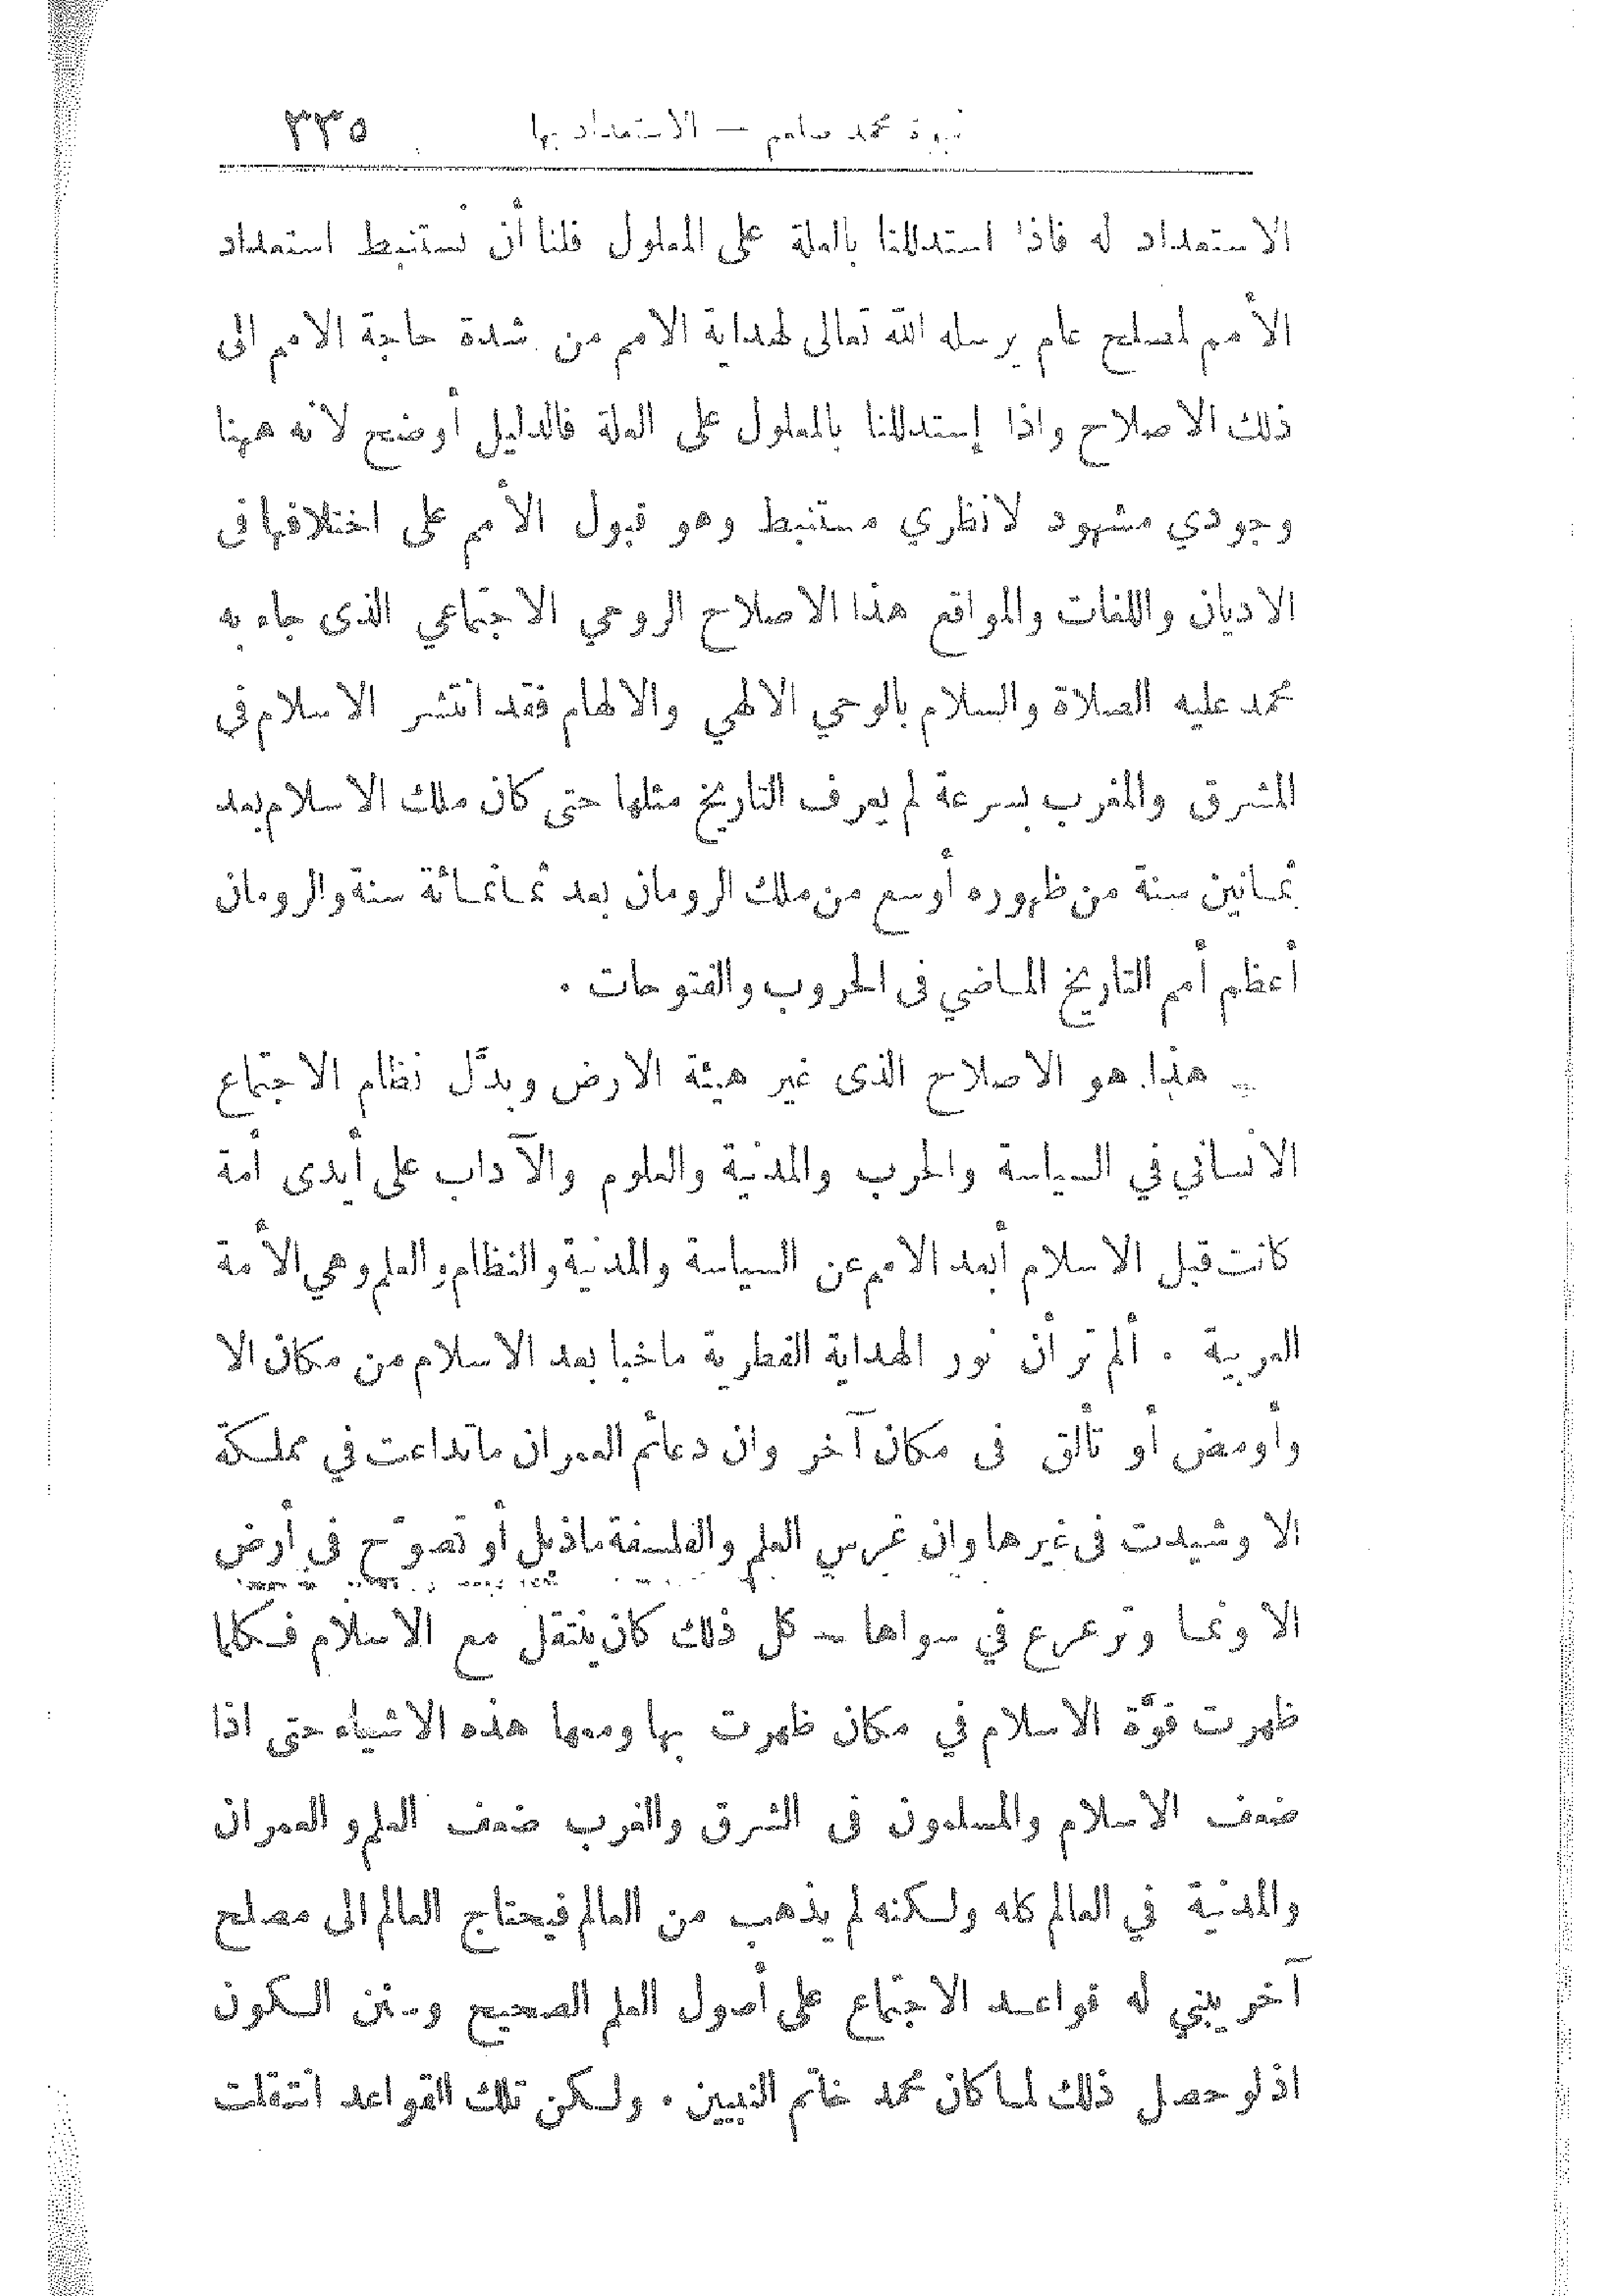 نبوة محمد صلعم — الاستعداد بها ٣٣٥
الاستعداد له فاذا استدللنا بالعلة على المعلول فلنا أن نستنبط استعداد
الأمم لمصلح عام يرسله الله تعالى لهداية الامم من شدة حاجة الامم الى
ذلك الاصلاح واذا إستدللنا بالمعلول على العلة فالدليل أوضح لانه ههنا
وجودي مشهود لانظري مستنبط وهو قبول الأمم على اختلافها فى
الاديان واللغات والمواقع هذا الاصلاح الروحي الاجتماعي الذى جاء به
محمد عليه الصلاة والسلام بالوحي الالهي والالهام فقد انتشر الاسلام فى
المشرق والمغرب بسرعة لم يعرف التاريخ مثلها حتى كان ملك الاسلام بعد
ثمانين سنة من ظهوره أوسع من ملك الرومان بعد ثمانمائة سنة والرومان
أعظم أمم التاريخ الماضي فى الحروب والفتوحات .
هذا هو الاصلاح الذى غير هيئة الارض وبدَّل نظام الاجتماع
الانساني في السياسة والحرب والمدنية والعلوم والآداب على أيدى أمة
كانت قبل الاسلام أبعد الامم عن السياسة والمدنية والنظام والعلم وهي الأمة
العربية . ألم تر أن نور الهداية الفطرية ماخبا بعد الاسلام من مكان الا
وأومض أو تألق فى مكان آخر وان دعائم العمران ماتداعت في مملكة
الا وشيدت فى غيرها وان غرس العلم والفلسفة ماذبل أو تصوّح في أرض
الا ونما وترعرع في سواها — كل ذلك كان ينتقل مع الاسلام فكلما
ظهرت قوَّة الاسلام في مكان ظهرت بها ومعها هذه الاشياء حتى اذا
ضعف الاسلام والمسلمون فى الشرق والغرب ضعف العلم والعمران
والمدنية في العالم كله ولكنه لم يذهب من العالم فيحتاج العالم الى مصلح
آخر يبني له قواعد الاجتماع على أصول العلم الصحيح وسنن الكون
اذ لو حصل ذلك لما كان محمد خاتم النبيين . ولكن تلك القواعد انتقلت